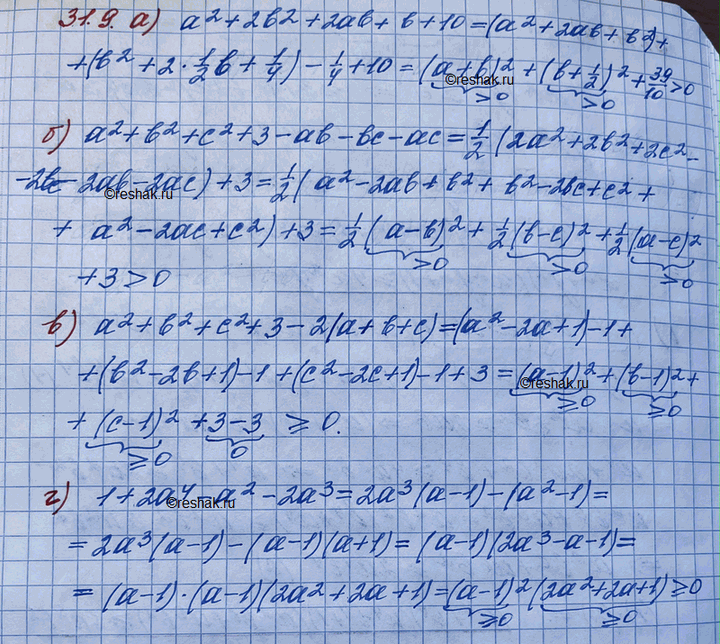 31.9. а) a² + 2b² + 2ab + b + 10 = (a² + 2ab + b²) +
+ (b² + 2 · 1/2 b + 1/4) − 1/4 + 10 = (a+b)² + (b + 1/2)² + 39/10 > 0
≥0 ≥0
©reshak.ru
б) a² + b² + c² + 3 − ab − bc − ac = 1/2 (2a² + 2b² + 2c² −
− 2bc − 2ab − 2ac) + 3 = 1/2 (a² − 2ab + b² + b² − 2bc + c² +
©reshak.ru
+ a² − 2ac + c²) + 3 = 1/2 (a−b)² + 1/2 (b−c)² + 1/2 (a−c)²
≥0 ≥0 ≥0
+ 3 > 0
в) a² + b² + c² + 3 − 2(a + b + c) = (a² − 2a + 1) − 1 +
+ (b² − 2b + 1) − 1 + (c² − 2c + 1) − 1 + 3 = (a−1)² + (b−1)² +
≥0 ≥0
©reshak.ru
+ (c−1)² + 3 − 3 ≥ 0.
≥0 0
г) 1 + 2a⁴ − a² − 2a³ = 2a³(a−1) − (a²−1) =
©reshak.ru
= 2a³(a−1) − (a−1)(a+1) = (a−1)(2a³ − a − 1) =
= (a−1) · (a−1)(2a² + 2a + 1) = (a−1)² (2a² + 2a + 1) ≥ 0
≥0 ≥0